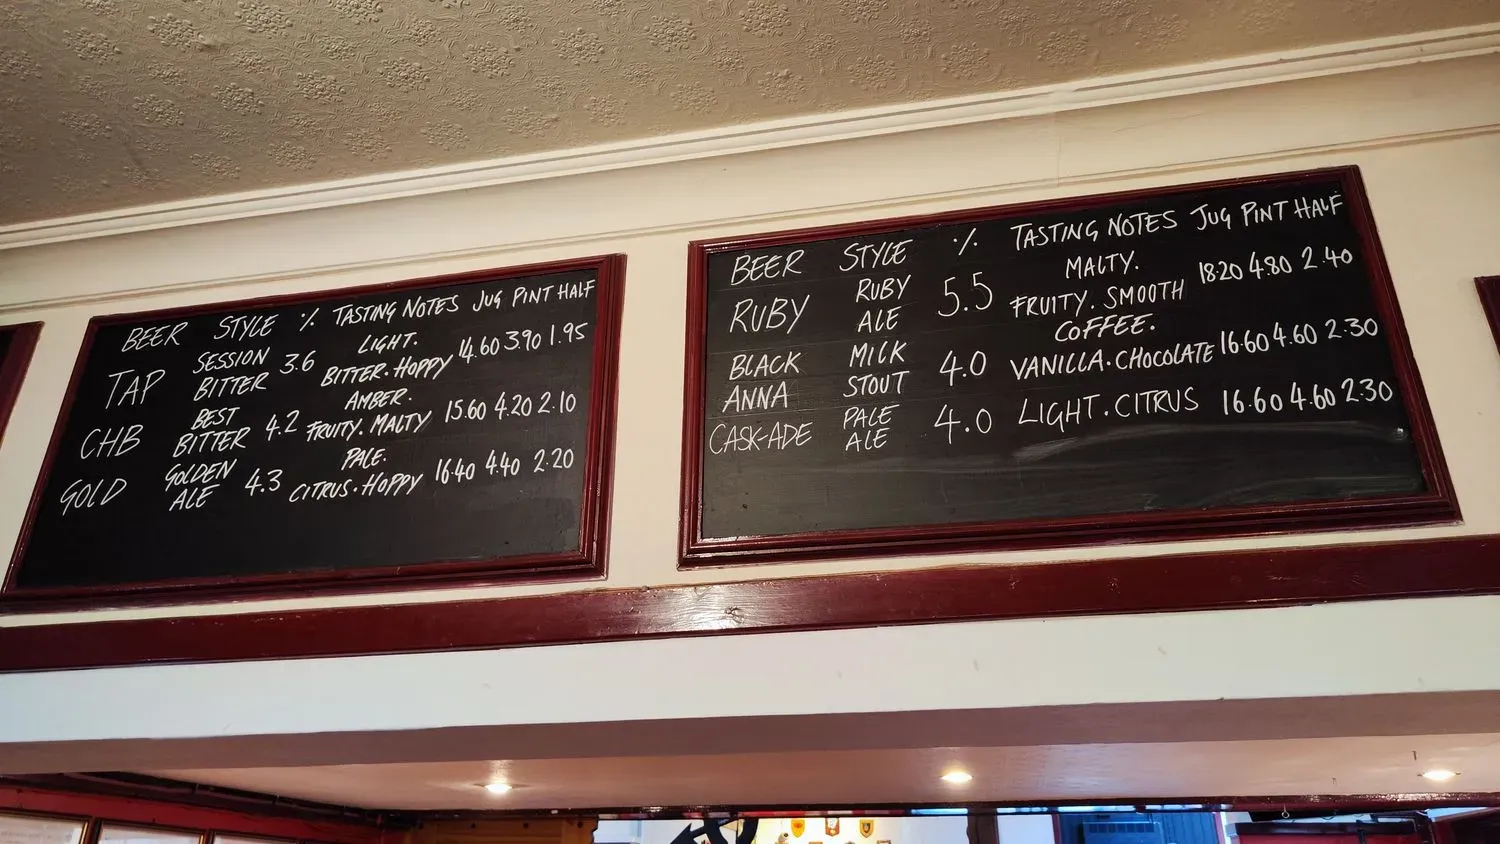 BEER STYLE % TASTING NOTES JUG PINT HALF
TAP SESSION BITTER 3.6 LIGHT. BITTER·HOPPY 14.60 3.90 1.95
CHB BEST BITTER 4.2 AMBER. FRUITY. MALTY 15.60 4.20 2.10
GOLD GOLDEN ALE 4.3 PALE. CITRUS·HOPPY 16.40 4.40 2.20
BEER STYLE % TASTING NOTES JUG PINT HALF
RUBY RUBY ALE 5.5 MALTY. FRUITY. SMOOTH 18.20 4.80 2.40
BLACK ANNA MILK STOUT 4.0 COFFEE. VANILLA·CHOCOLATE 16.60 4.60 2.30
CASK-ADE PALE ALE 4.0 LIGHT·CITRUS 16.60 4.60 2.30